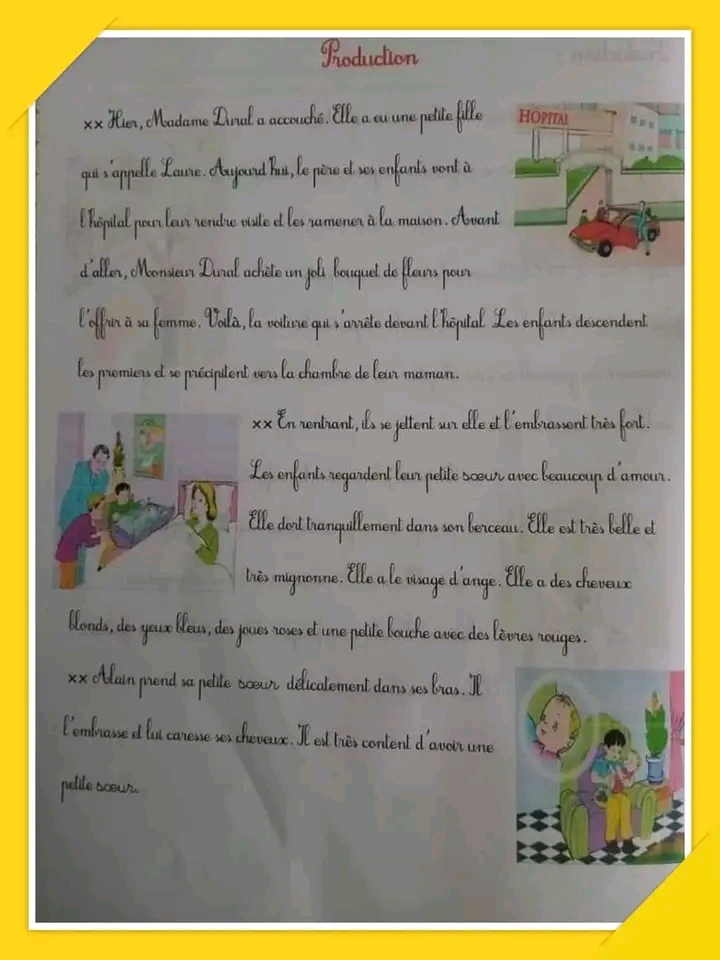 Production
xx Hier, Madame Dural a accouché. Elle a eu une petite fille
HÔPITAL
qui s'appelle Laure. Aujourd'hui, le père et ses enfants vont à
l'hôpital pour leur rendre visite et les ramener à la maison. Avant
d'aller, Monsieur Dural achète un joli bouquet de fleurs pour
l'offrir à sa femme. Voilà, la voiture qui s'arrête devant l'hôpital Les enfants descendent
les premiers et se précipitent vers la chambre de leur maman.
xx En rentrant, ils se jettent sur elle et l'embrassent très fort.
Les enfants regardent leur petite sœur avec beaucoup d'amour.
Elle dort tranquillement dans son berceau. Elle est très belle et
très mignonne. Elle a le visage d'ange. Elle a des cheveux
blonds, des yeux bleus, des joues roses et une petite bouche avec des lèvres rouges.
xx Alain prend sa petite sœur délicatement dans ses bras. Il
l'embrasse et lui caresse ses cheveux. Il est très content d'avoir une
petite sœur.